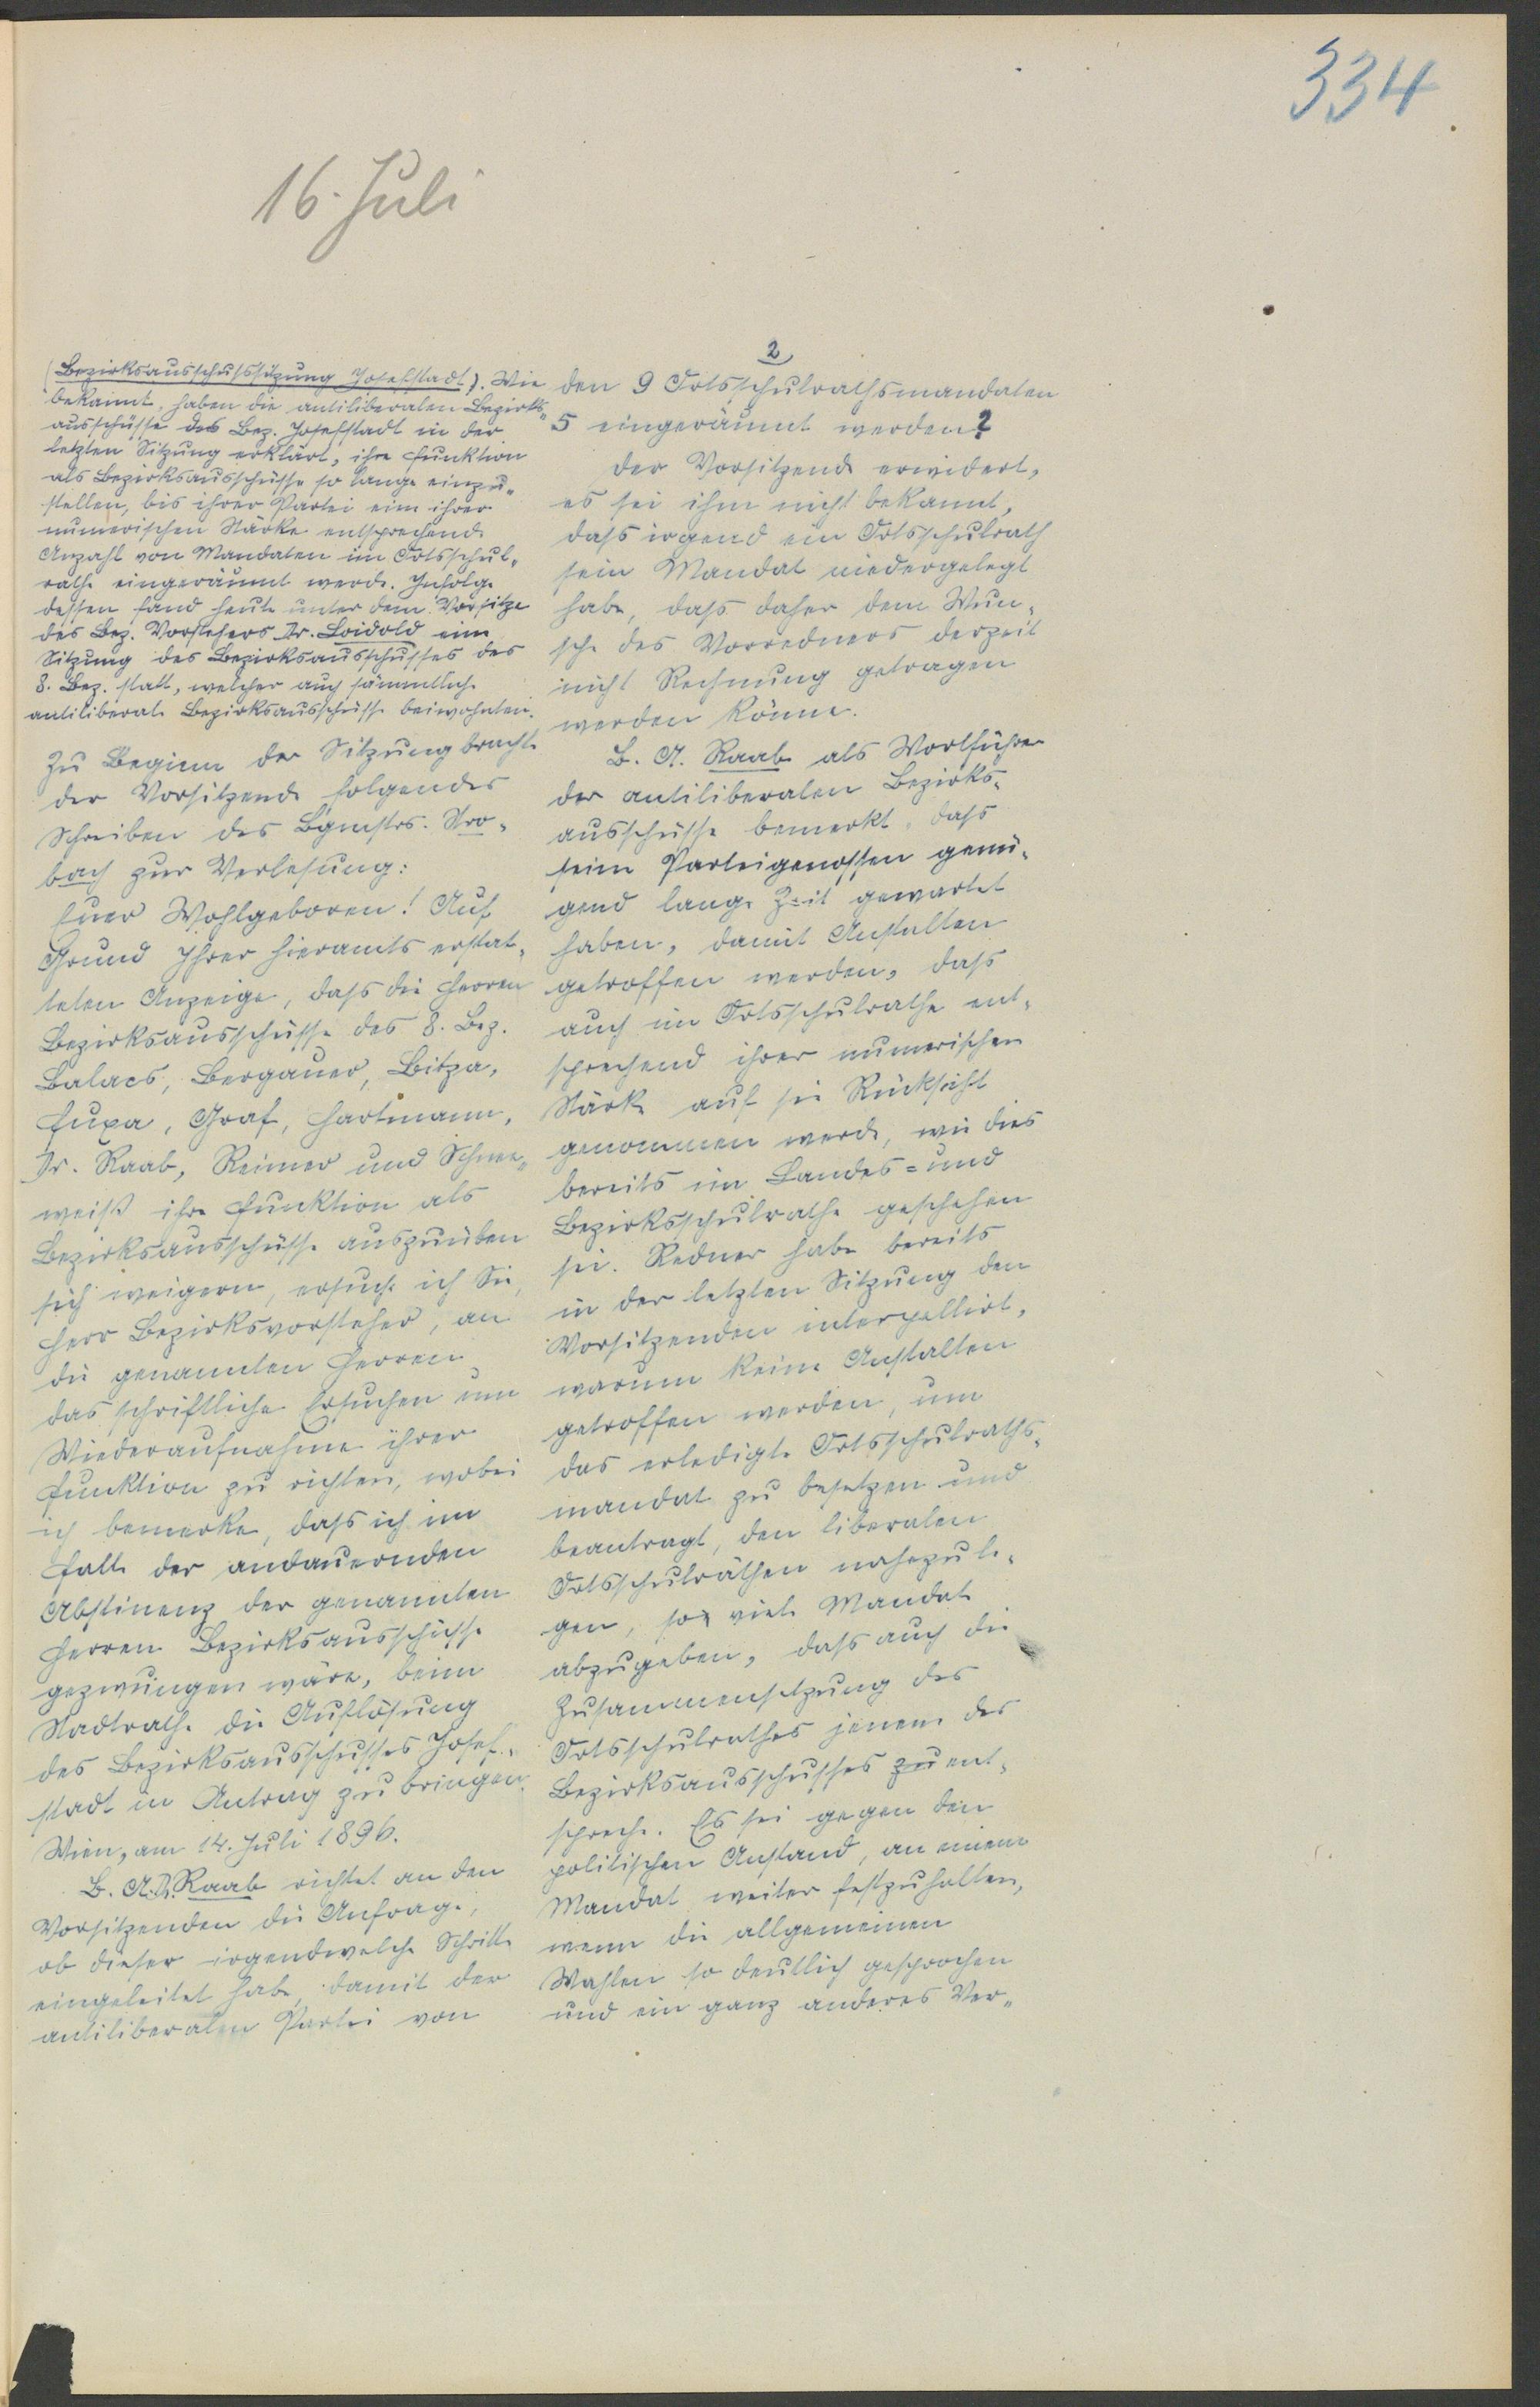 334
16. Juli
(Bezirksausschußsitzung Josefstadt). Wie
bekannt, haben die antiliberalen Bezirks-
ausschüsse des Bez. Josefstadt in der
letzten Sitzung erklärt, ihre Funktion
als Bezirksausschüsse so lange einzu-
stellen, bis ihrer Partei eine ihrer
numerischen Stärke entsprechende
Anzahl von Mandaten im Ortsschul-
rathe eingeräumt werde. Infolge
dessen fand heute unter dem Vorsitze
des Bez. Vorstehers Dr. Loidold eine
Sitzung des Bezirksausschusses des
8. Bez. statt, welcher auch sämmtliche
antiliberale Bezirksausschüsse beiwohnten.
Zu Beginn der Sitzung brachte
der Vorsitzende folgendes
Schreiben des Bgmstrs. Stro-
bach zur Verlesung:
Euer Wohlgeboren! Auf
Grund Ihrer hieramts erstat-
teten Anzeige, daß die Herren
Bezirksausschüsse des 8. Bez.
Balacs, Bergauer, Bitza,
Fuxa, Graf, Hartmann,
Dr. Raab, Reimer und Schnee-
weiß ihre Funktion als
Bezirksausschüsse auszuüben
sich weigern, ersuche ich Sie,
Herr Bezirksvorsteher, an
die genannten Herren
das schriftliche Ersuchen um
Wiederaufnahme ihrer
Funktion zu richten, wobei
ich bemerke, daß ich im
Falle der andauernden
Abstinenz der genannten
Herren Bezirksausschüsse
gezwungen wäre, beim
Stadtrathe die Auflösung
des Bezirksausschusses Josef-
stadt in Antrag zu bringen.
Wien, am 14. Juli 1896.
B. A. Dr. Raab richtet an den
Vorsitzenden die Anfrage,
ob dieser irgendwelche Schritte
eingeleitet habe, damit der
antiliberalen Partei von
2
den 9 Ortsschulrathsmandaten
5 eingeräumt werden?
Der Vorsitzende erwidert,
es sei ihm nicht bekannt,
daß irgend ein Ortsschulrath
sein Mandat niedergelegt
habe, daß daher dem Wun-
sche des Vorredners derzeit
nicht Rechnung getragen
werden könne.
B. A. Raab als Wortführer
der antiliberalen Bezirks-
ausschüsse bemerkt, daß
seine Parteigenossen genü-
gend lange Zeit gewartet
haben, damit Anstalten
getroffen werden, daß
auch im Ortsschulrathe ent-
sprechend ihrer numerischen
Stärke auf sie Rücksicht
genommen werde, wie dies
bereits im Landes- und
Bezirksschulrathe geschehen
sei. Redner habe bereits
in der letzten Sitzung den
Vorsitzenden interpellirt,
warum keine Anstalten
getroffen werden, um
das erledigte Ortsschulraths-
mandat zu besetzen und
beantragt, den liberalen
Ortsschulräthen nahezule-
gen, so viele Mandate
abzugeben, daß auch die
Zusammensetzung des
Ortsschulrathes jenem des
Bezirksausschusses zu ent-
spreche. Es sei gegen den
politischen Anstand, an einem
Mandat weiter festzuhalten,
wenn die allgemeinen
Wahlen so deutlich gesprochen
und ein ganz anderes Ver-